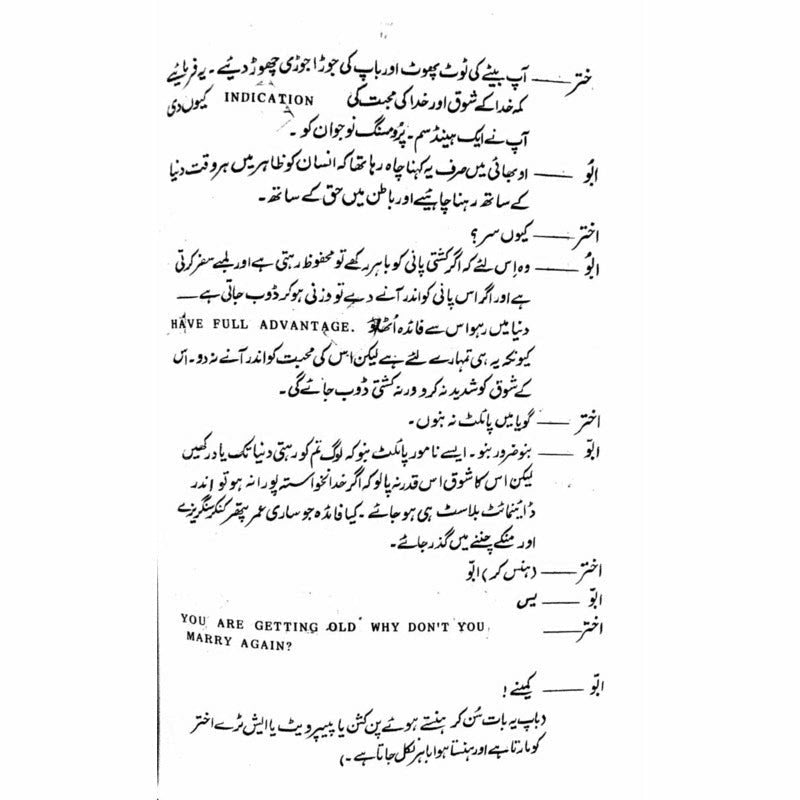 ختر ــــ آپ بیٹے کی ٹوٹ پھوٹ اور باپ کی جوڑا جوڑی چھوڑ دیئے۔ یہ فرمائیے
کہ خدا کے شوق اور خدا کی محبت کی INDICATION کیوں دی
آپ نے ایک ہینڈسم۔ پرومسنگ نوجوان کو۔
ابُو ــــ او بھائی میں صرف یہ کہنا چاہ رہا تھا کہ انسان کو ظاہر میں ہر وقت دنیا
کے ساتھ رہنا چاہئیے اور باطن میں حق کے ساتھ۔
اختر ــــ کیوں سر؟
ابُو ــــ وہ اِس لئے کہ اگر کشتی پانی کو باہر رکھے تو محفوظ رہتی ہے اور لمبے سفر کرتی
ہے اور اگر اس پانی کو اندر آنے دے تو وزنی ہو کر ڈوب جاتی ہے ــــ
دنیا میں رہو اس سے فائدہ اُٹھاؤ HAVE FULL ADVANTAGE.
کیونکہ یہ ہی تمہارے لئے ہے لیکن اس کی محبت کو اندر آنے نہ دو۔ اس
کے شوق کو شدید نہ کرو ورنہ کشتی ڈوب جائے گی۔
اختر ــــ گویا میں پائلٹ نہ بنوں۔
ابّو ــــ بنو ضرور بنو۔ ایسے نامور پائلٹ بنو کہ لوگ تم کو رہتی دنیا تک یاد رکھیں
لیکن اس کا شوق اس قدر نہ پالو کہ اگر خدانخواستہ پورا نہ ہو تو اندر
ڈائینمائٹ بلاسٹ ہی ہو جائے۔ کیا فائدہ جو ساری عمر پتھر کنکر سنگریزے
اور منکے چننے میں گذر جائے۔
اختر ــــ (ہنس کر) ابّو
ابّو ــــ یس
اختر ــــ YOU ARE GETTING OLD WHY DON'T YOU
MARRY AGAIN?
ابّو ــــ کمینے!
(باپ یہ بات سُن کر ہنستے ہوئے پن کشن یا پیپر ویٹ یا ایش ٹرے اختر
کو مارتا ہے اور ہنستا ہوا باہر نکل جاتا ہے۔)